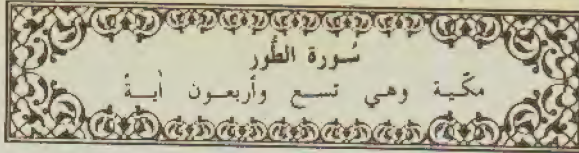 سُورة الطُّور
مكّية وهي تسع وأربعون أيةً